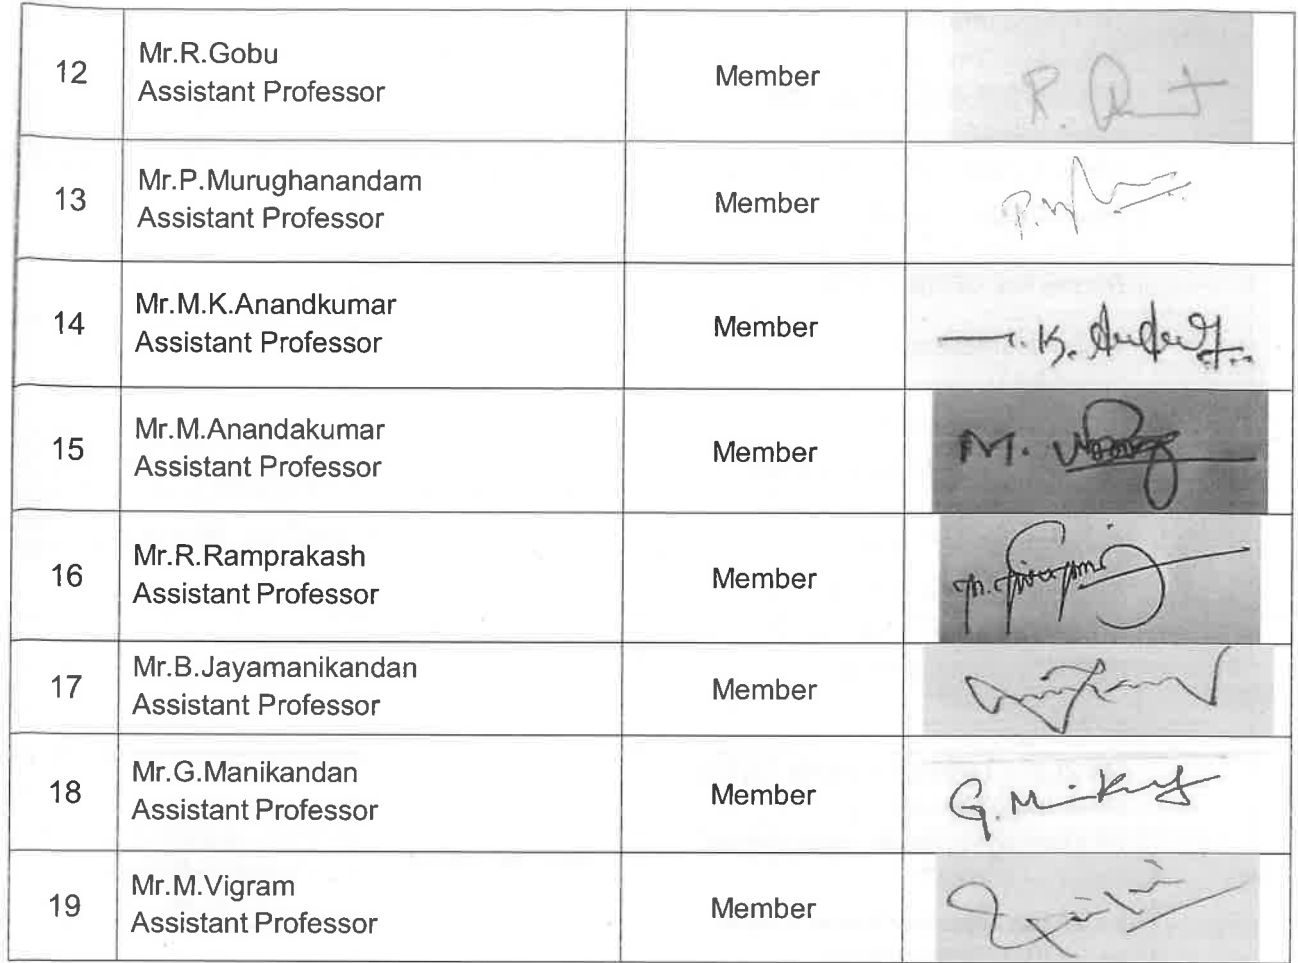 12
Mr.R.Gobu
Assistant Professor
Member
13
Mr.P.Murughanandam
Assistant Professor
Member
14
Mr.M.K.Anandkumar
Assistant Professor
Member
15
Mr.M.Anandakumar
Assistant Professor
Member
16
Mr.R.Ramprakash
Assistant Professor
Member
17
Mr.B.Jayamanikandan
Assistant Professor
Member
18
Mr.G.Manikandan
Assistant Professor
Member
19
Mr.M.Vigram
Assistant Professor
Member